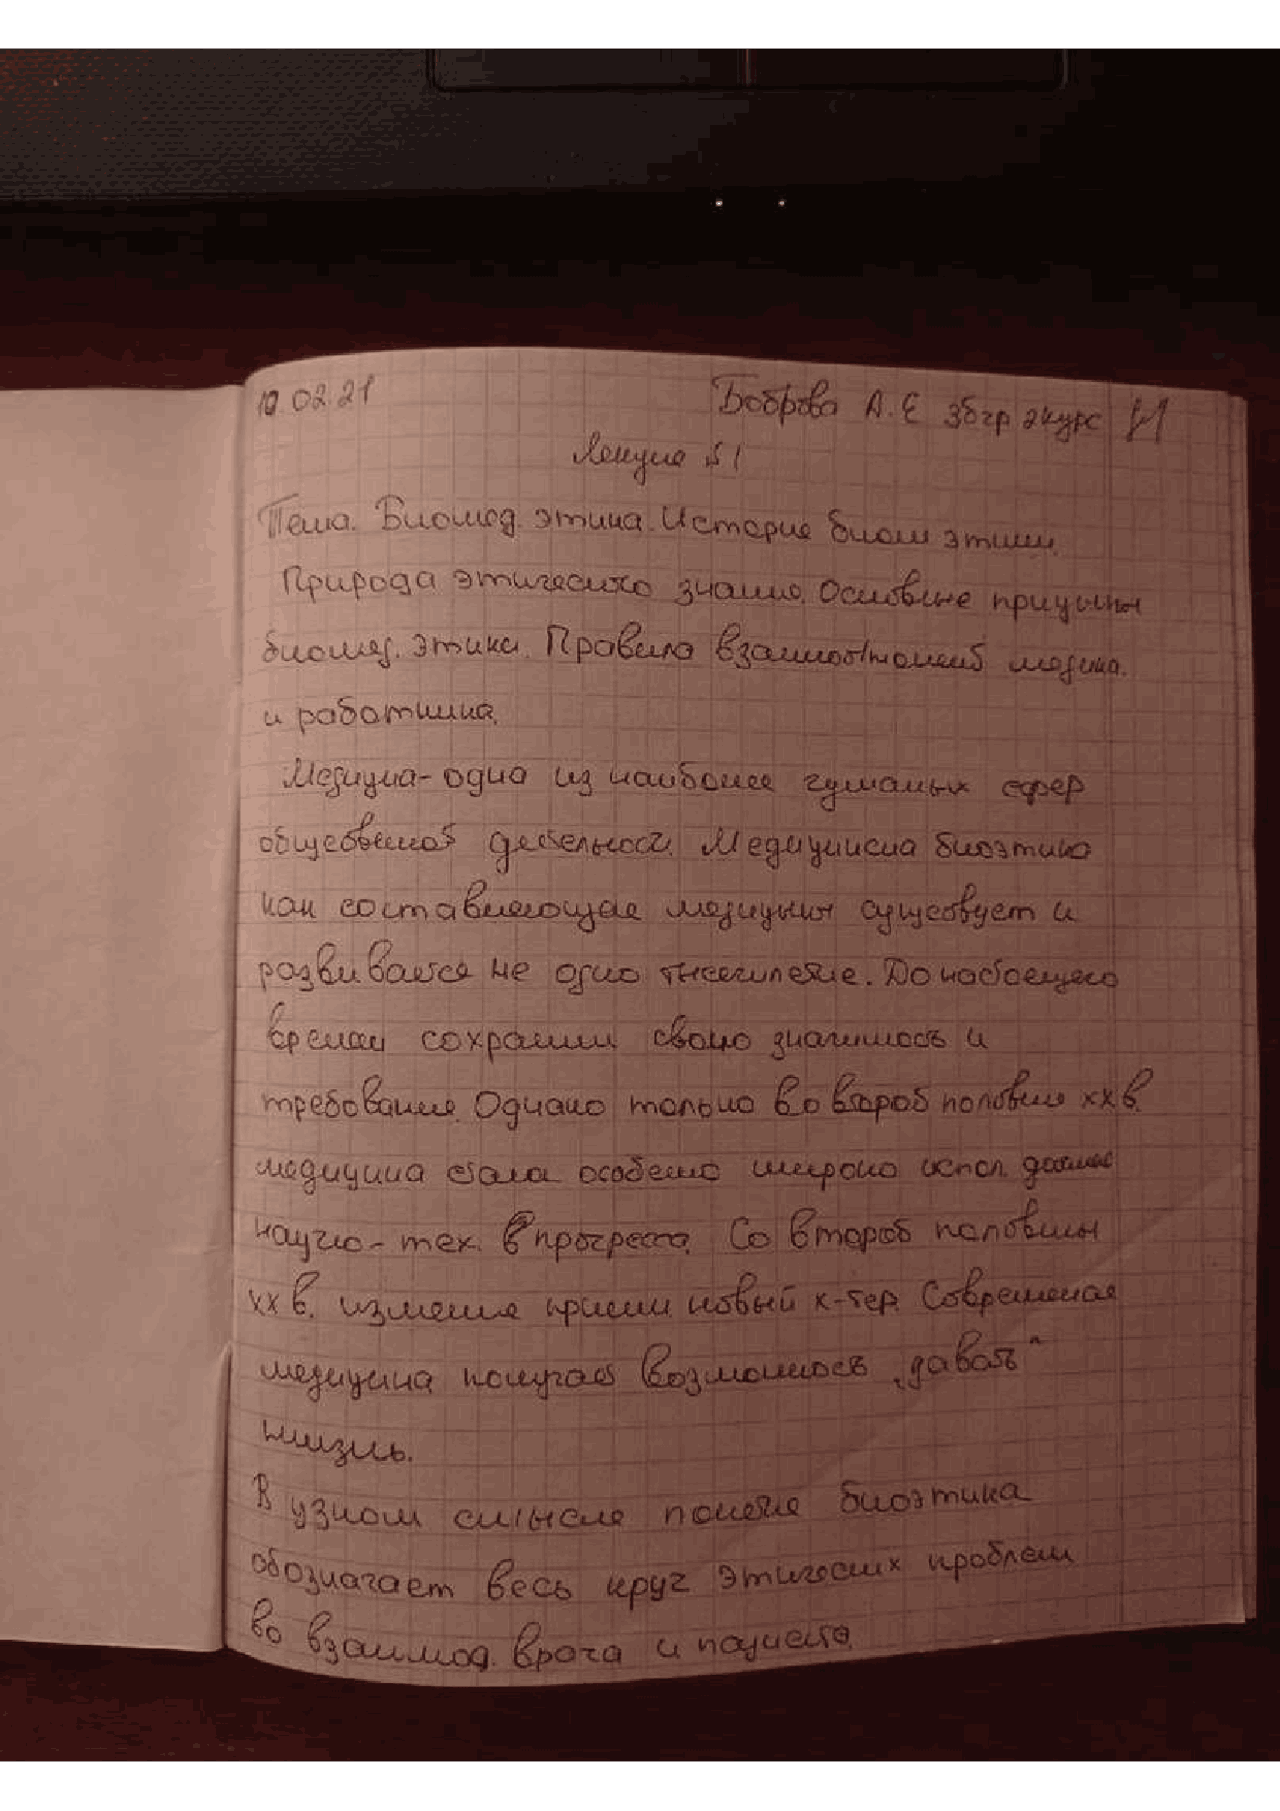 10.02.21 Боброва А.Е 36гр 2курс
Лекция №1
Тема. Биомед. этика. История биом этики.
Природа этического знания. Основные принципы
биомед. этики. Правила взаимоотношений медика.
и работника.
Медицина - одна из наиболее гуманых сфер
общественой деятельности. Медицинска биоэтика
как составляющая медицины существует и
развивается не одно тысячилетие. До настоящего
времени сохранили свою значимость и
требования. Однако только во второй половине XX в.
медицина стала особено широко испол. даные
научно - тех. прогресса. Со второй половины
XX в. новый х-тер. Современая
медицина получает возможность „давать"
жизнь.
В узком смысле понятие биоэтика
обозначает весь круг этических проблем
во взаимод. врача и пациента.